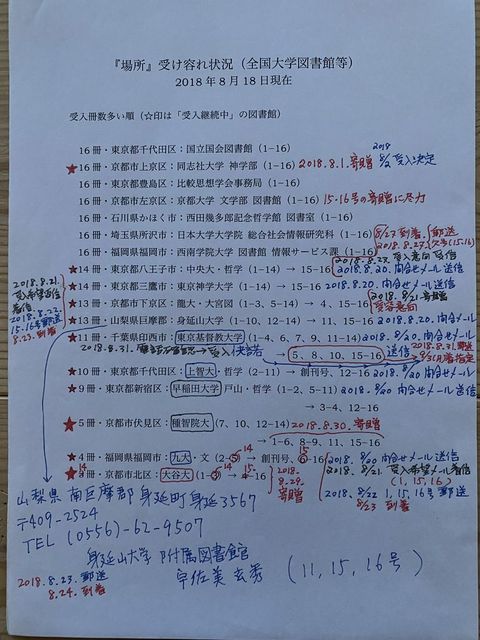 『場所』受け容れ状況（全国大学図書館等）
2018年8月18日現在
受入冊数多い順（☆印は「受入継続中」の図書館）
16冊・東京都千代田区：国立国会図書館（1-16）
★16冊・京都市上京区：同志社大学 神学部（1-16）2018.8.1.寄贈 2018 8/2 受入決定
16冊・東京都豊島区：比較思想学会事務局（1-16）
16冊・京都市左京区：京都大学 文学部 図書館（1-16）15・16号の寄贈に尽力
16冊・石川県かほく市：西田幾多郎記念哲学館 図書室（1-16）
16冊・埼玉県所沢市：日本大学大学院 総合社会情報研究科（1-16）8/23 到着 2018.8.22. 郵送 欠号(15.16)
16冊・福岡県福岡市：西南学院大学 図書館 情報サービス課（1-16）
★14冊・東京都八王子市：中央大・哲学（1-14）→ 15-16 2018.8.20. 問合せメール送信
★14冊・東京都三鷹市：東京神学大学（1-14）→ 15-16 2018.8.20. 問合せメール送信
★13冊・京都市下京区：龍大・大宮図（1-3、5-14）→ 4、15-16 2018.8/21.寄贈 受容意向
★13冊・山梨県巨摩郡：身延山大学（1-10、12-14）→ 11、15-16 2018.8.20. 問合せメール送信
2018.8.21.
受入希望返信
着信
2018.8.22.
15.16号郵送
8.23.到着
★11冊・千葉県印西市：東京基督教大学（1-4、6、7、9、11-14）2018.8/20. 問合せメール送信
2018.8.31.
5、8、10、15-16 送信 2018.8.31.郵送
★10冊・東京都千代田区：上智大・哲学（2-11）→ 創刊号、12-16 2018.8/20 問合せメール送信
★9冊・東京都新宿区：早稲田大学 戸山・哲学（1-2、5-11）2018.8/20 問合せメール送信
→ 3-4、12-16
★5冊・京都市伏見区：種智院大（7、10、12-14）2018.8.30.寄贈
→ 1-6、8-9、11、15-16
★4冊・福岡県福岡市：九大・文（2-5 14）→ 創刊号、6-16 15 2018.8/20 問合せメール送信
★3冊・京都市北区：大谷大（1-3 14）→ 4-16 15 2018.8.29.寄贈
2018.8/21. 受入希望メール着信
(1, 15, 16)
2018.8/22 1, 15, 16号 郵送
8/23 到着
山梨県 南巨摩郡 身延町 身延3567
〒409-2524
TEL (0556)-62-9507
身延山大学 附属図書館
宇佐美玄秀 (11, 15, 16号)
2018.8.23.郵送
8.24.到着